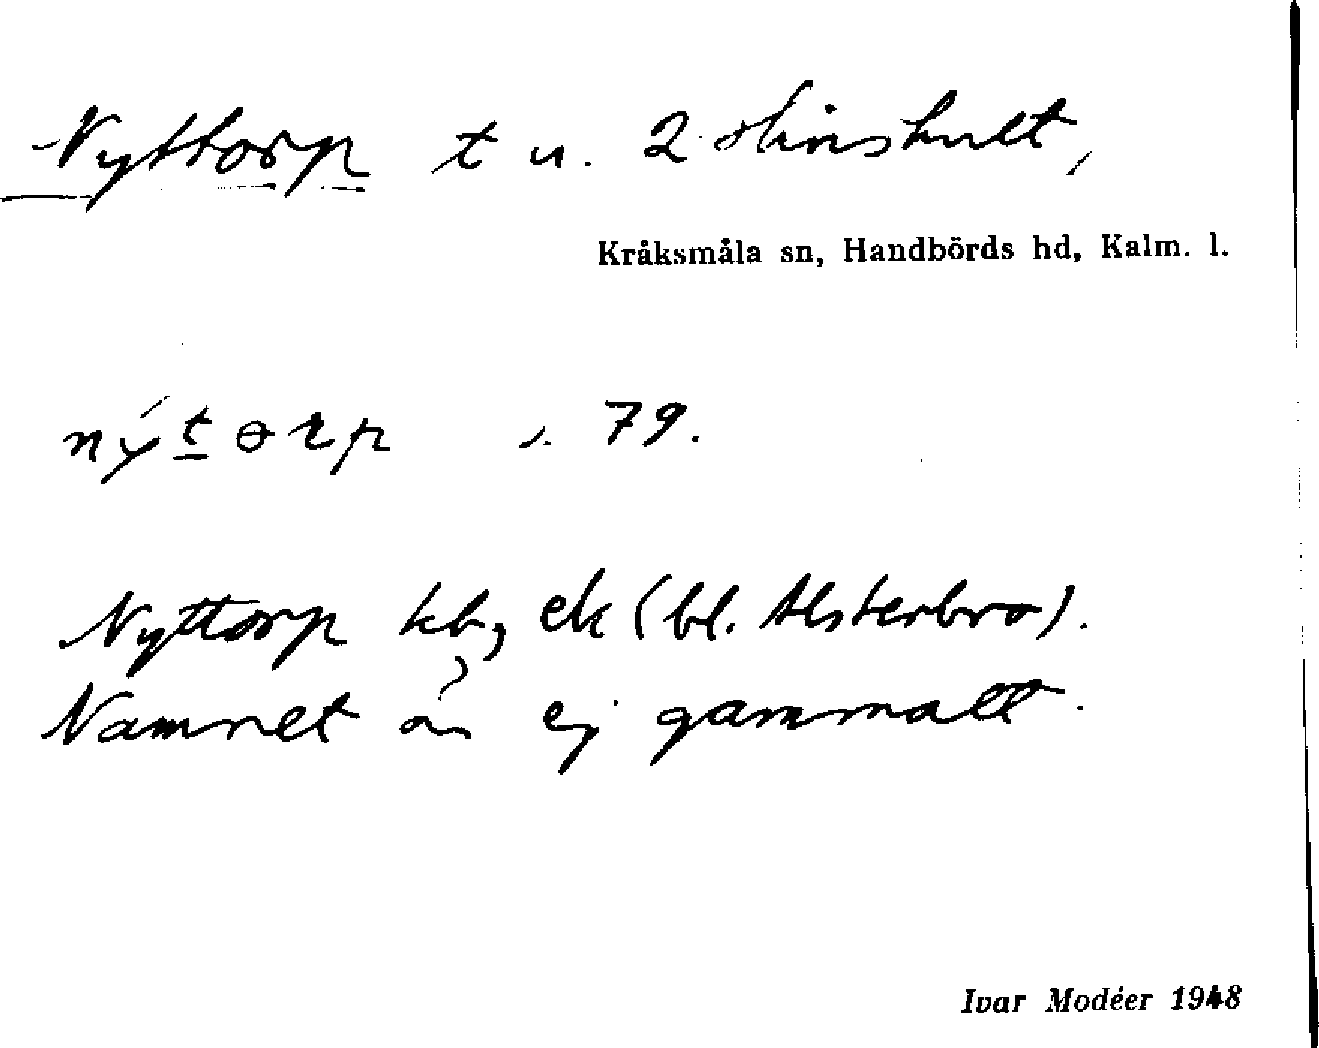 Nyttorp t u. 2 Skinshult,
Kråksmåla sn, Handbörds hd, Kalm. l.
ný t ɵ r p 79.
Nyttorp kb, ek (bl. Alsterbro).
Namnet är ej gammalt.
Ivar Modéer 1948